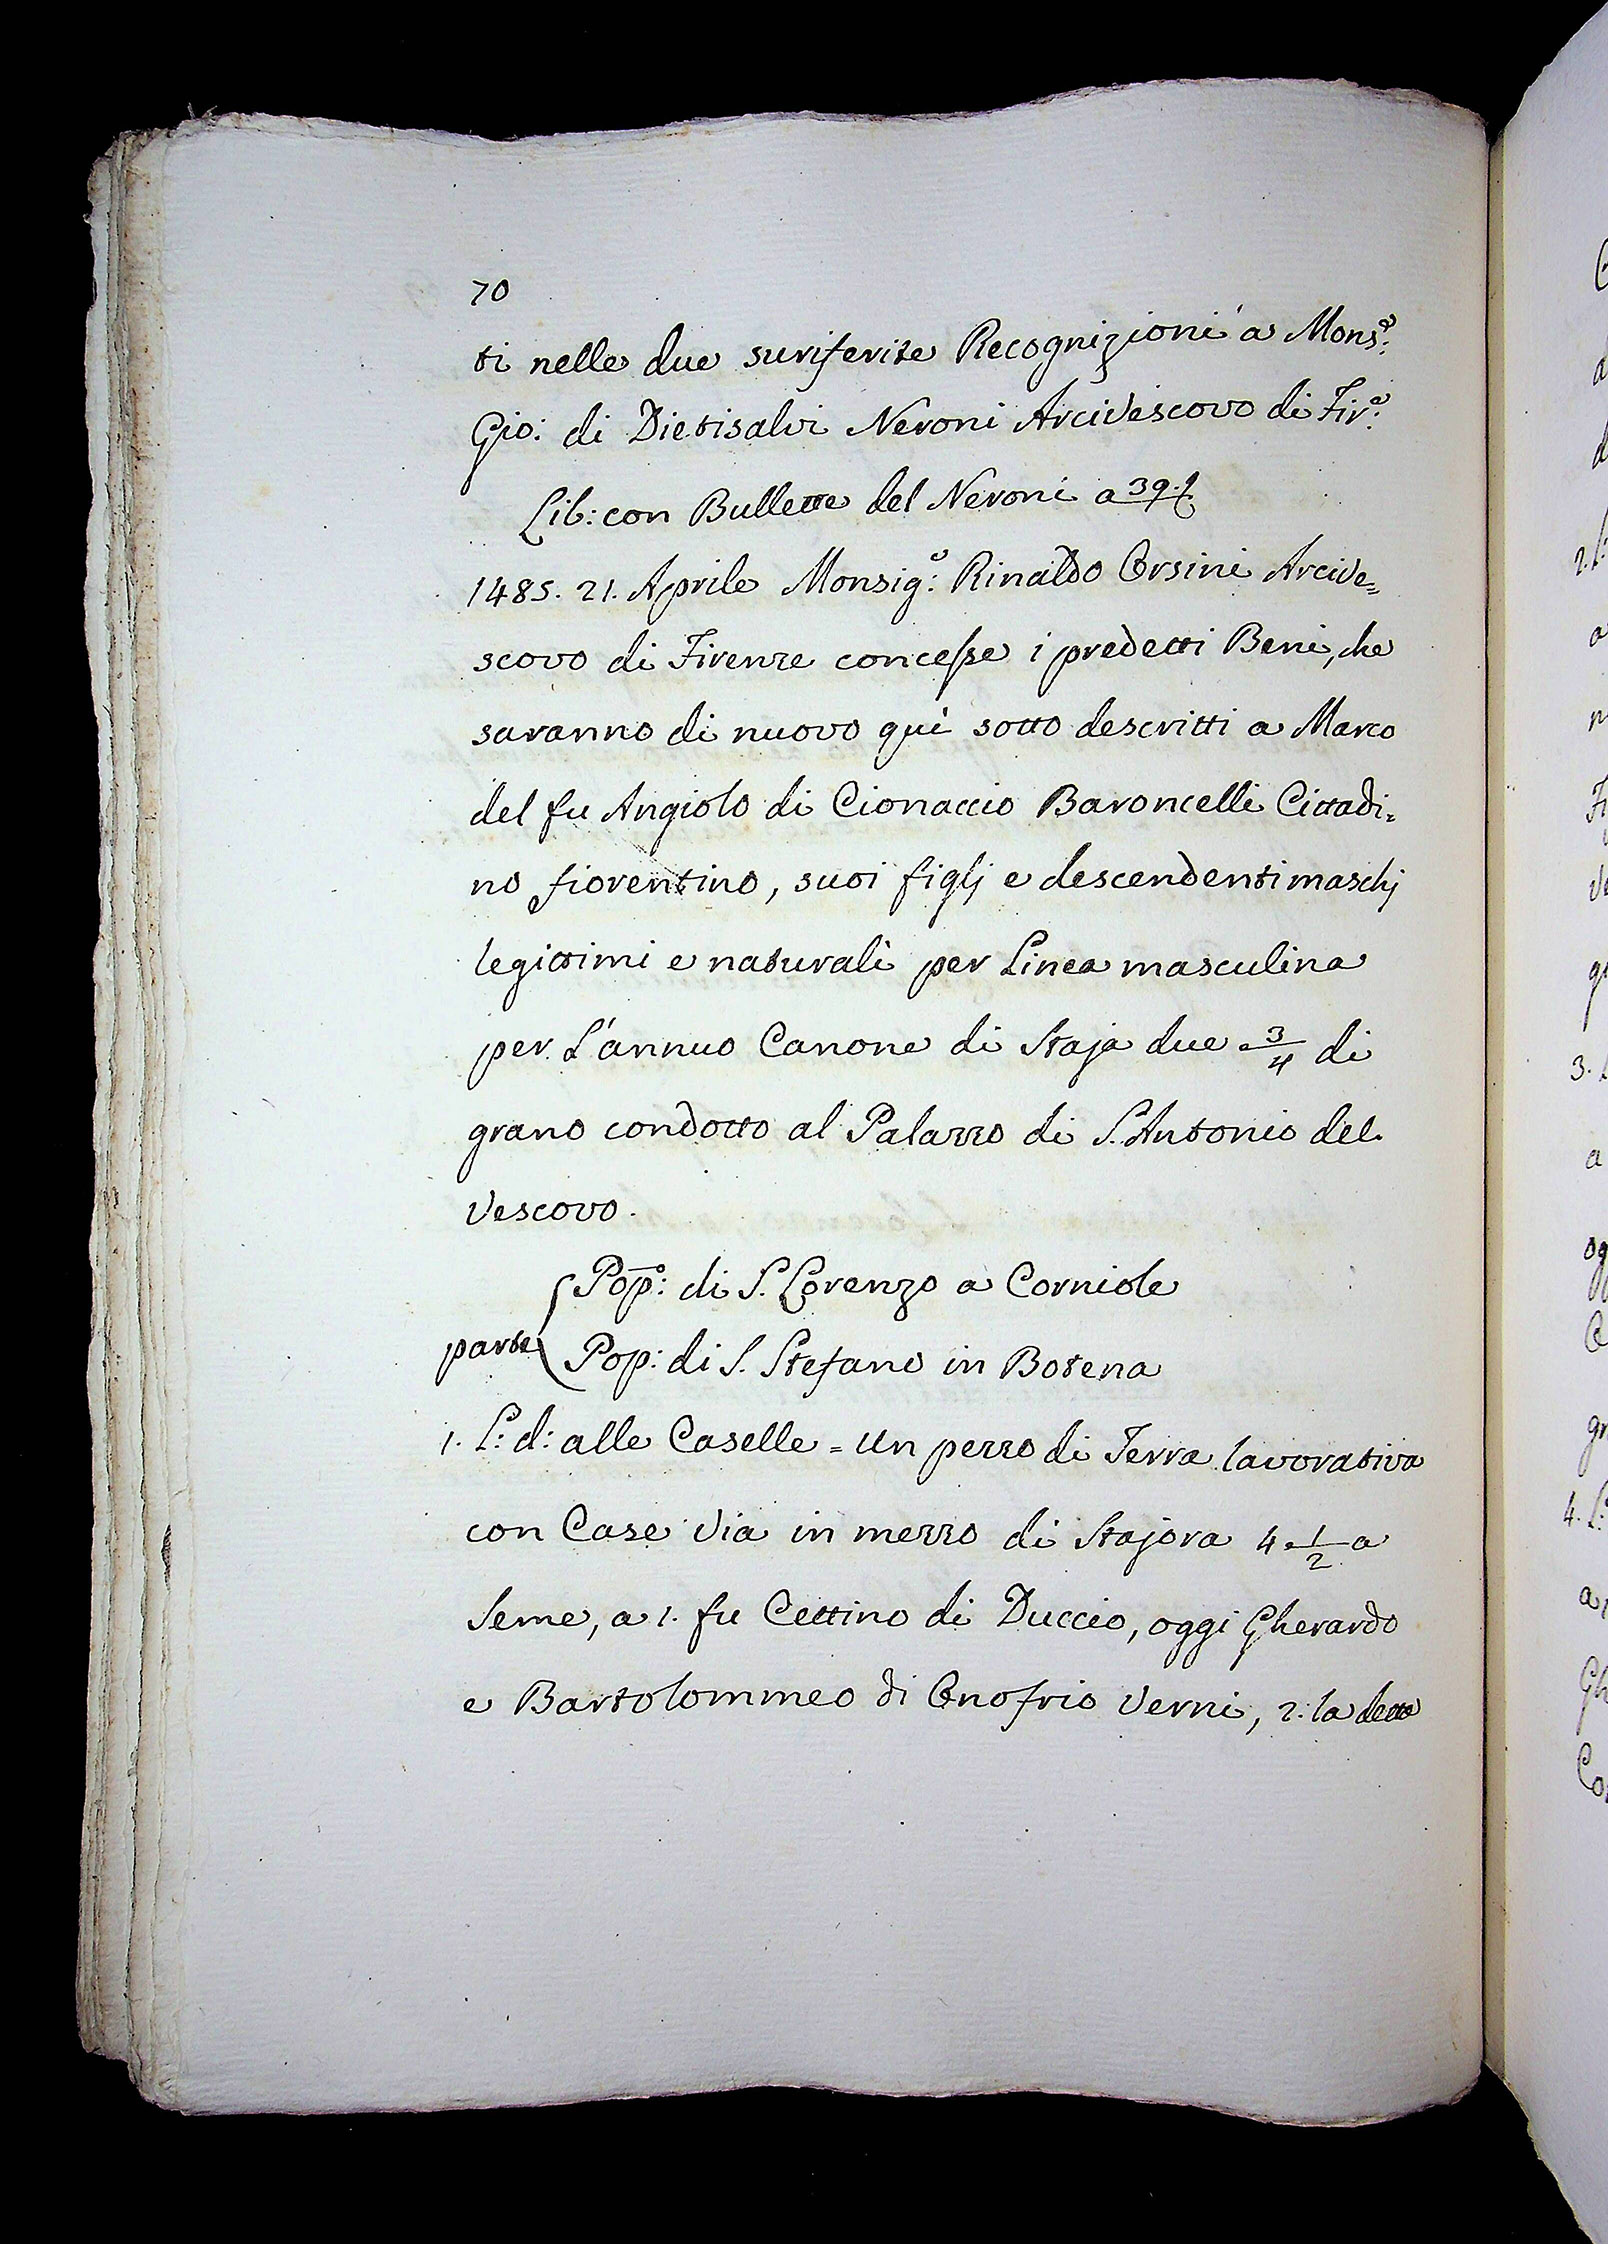 70
ti nelle due suriferite Recognizioni a Mons.e
Gio: di Dietisalvi Neroni Arcivescovo di Fir.e
Lib: con Bullette del Neroni a 39.t
1485. 21. Aprile Monsig.e: Rinaldo Orsini Arcive=
scovo di Firenze concesse i predetti Beni, che
saranno di nuovo quì sotto descritti a Marco
del fu Angiolo di Cionaccio Baroncelli Cittadi=
no fiorentino, suoi figlj e descendenti maschj
legittimi e naturali per Linea masculina
per L'annuo Canone di Staja due 3/4 di
grano condotto al Palazzo di S. Antonio del
Vescovo.
Pop:o di S. Lorenzo a Corniole
parte Pop: di S. Stefano in Botena
1. L: d: alle Caselle = Un pezzo di Terra lavorativa
con Case via in mezzo di Stajora 4 1/2 a
Seme, a 1. fu Cettino di Duccio, oggi Gherardo
e Bartolommeo di Onofrio Verni, 2. la detta